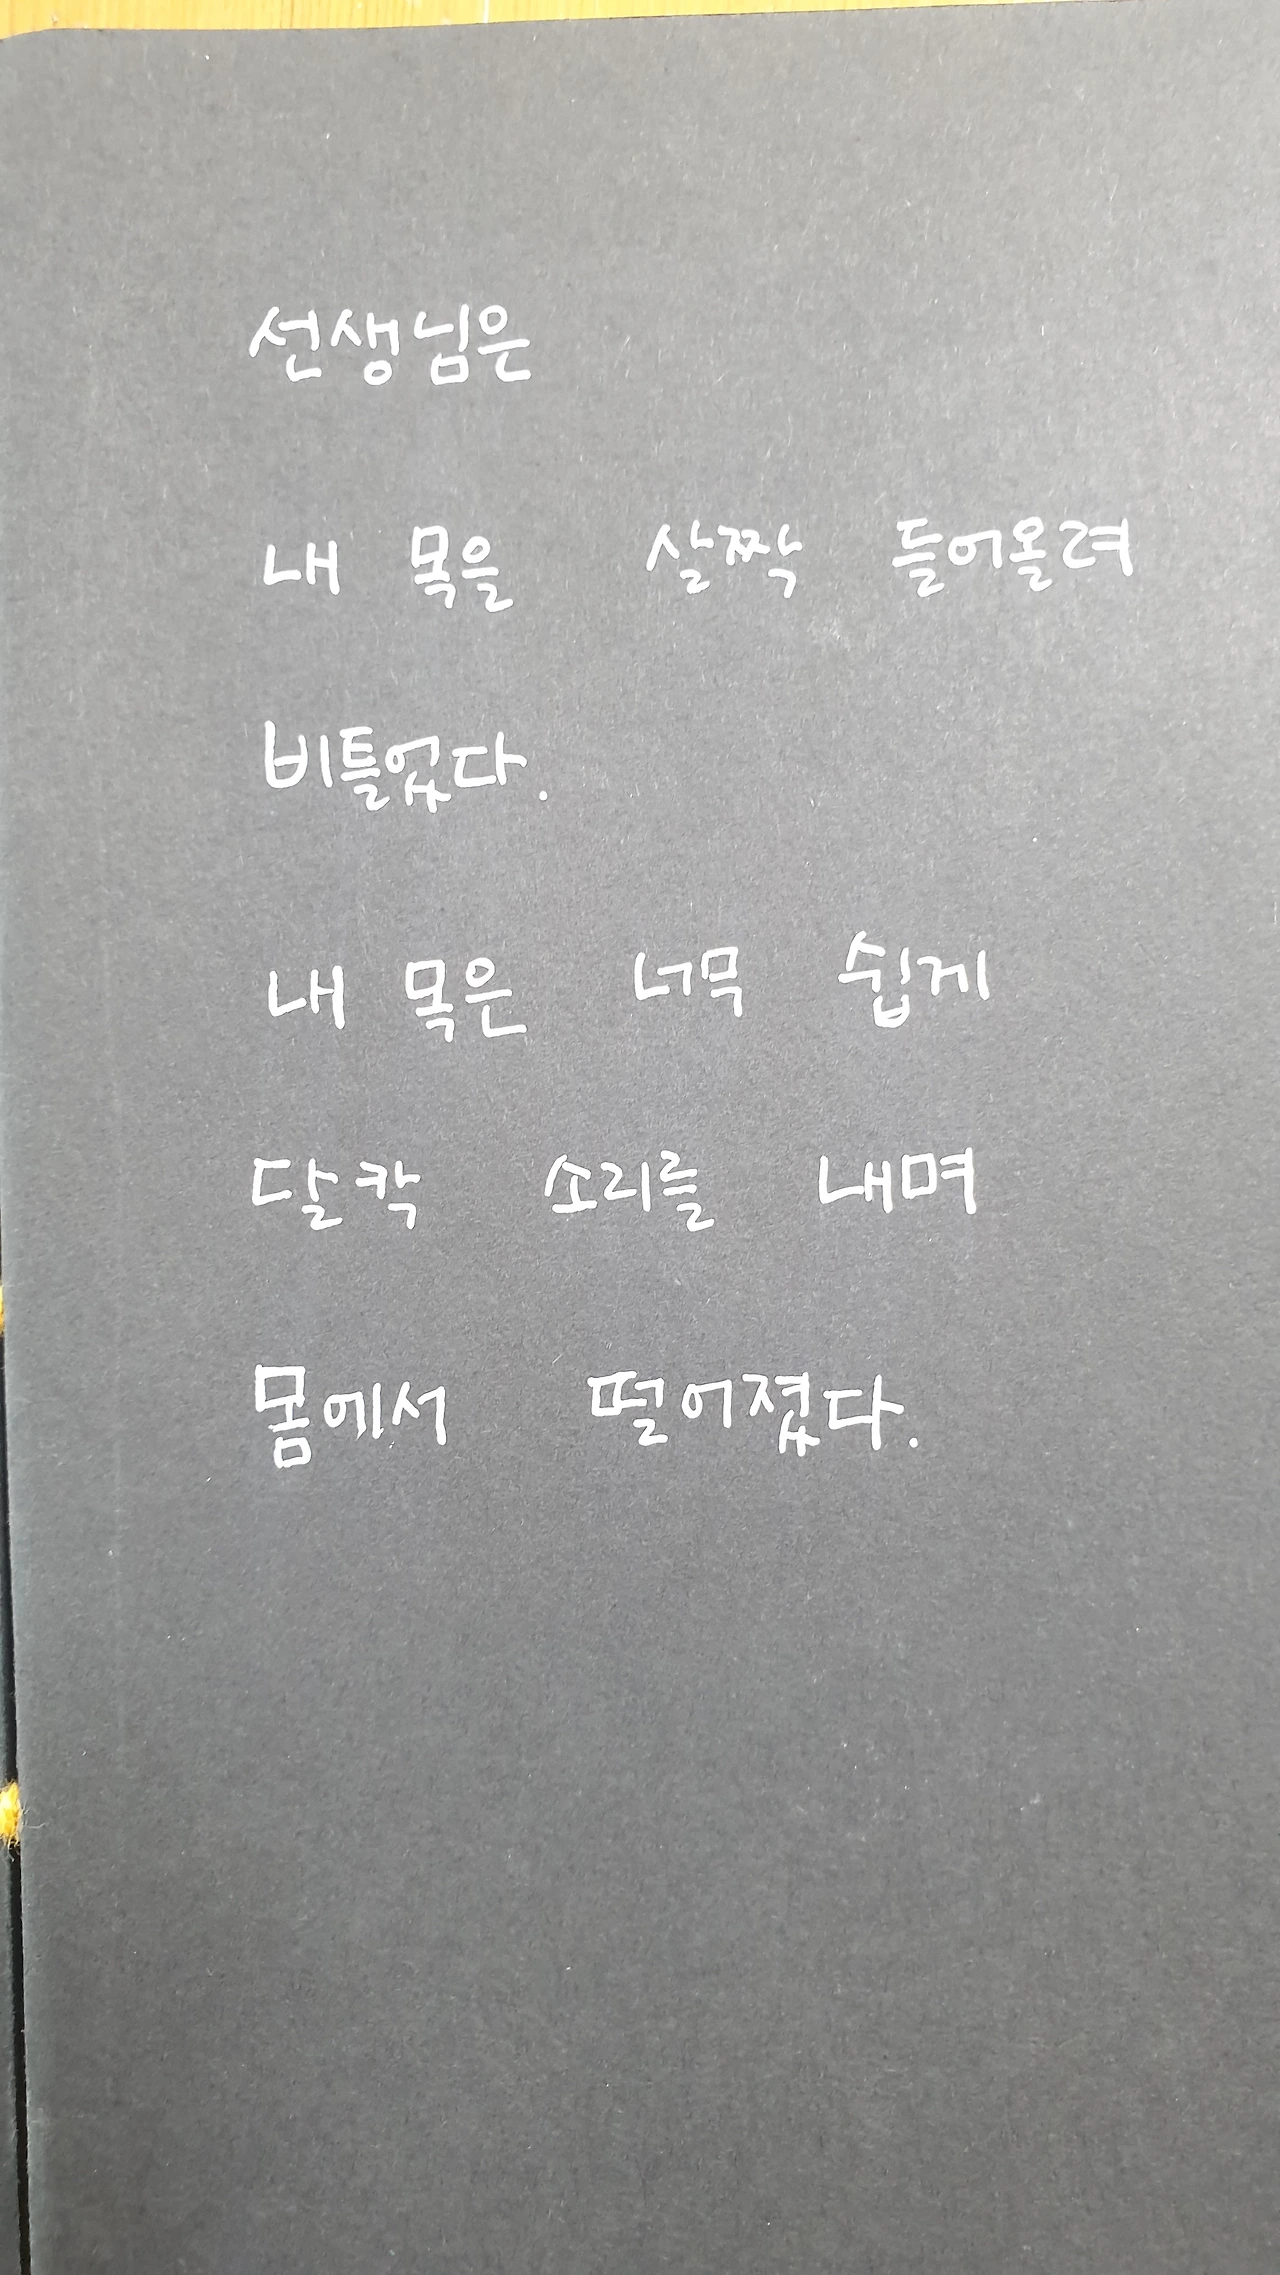 선생님은
내 목을 살짝 들어올려
비틀었다.
내 목은 너무 쉽게
달칵 소리를 내며
몸에서 떨어졌다.